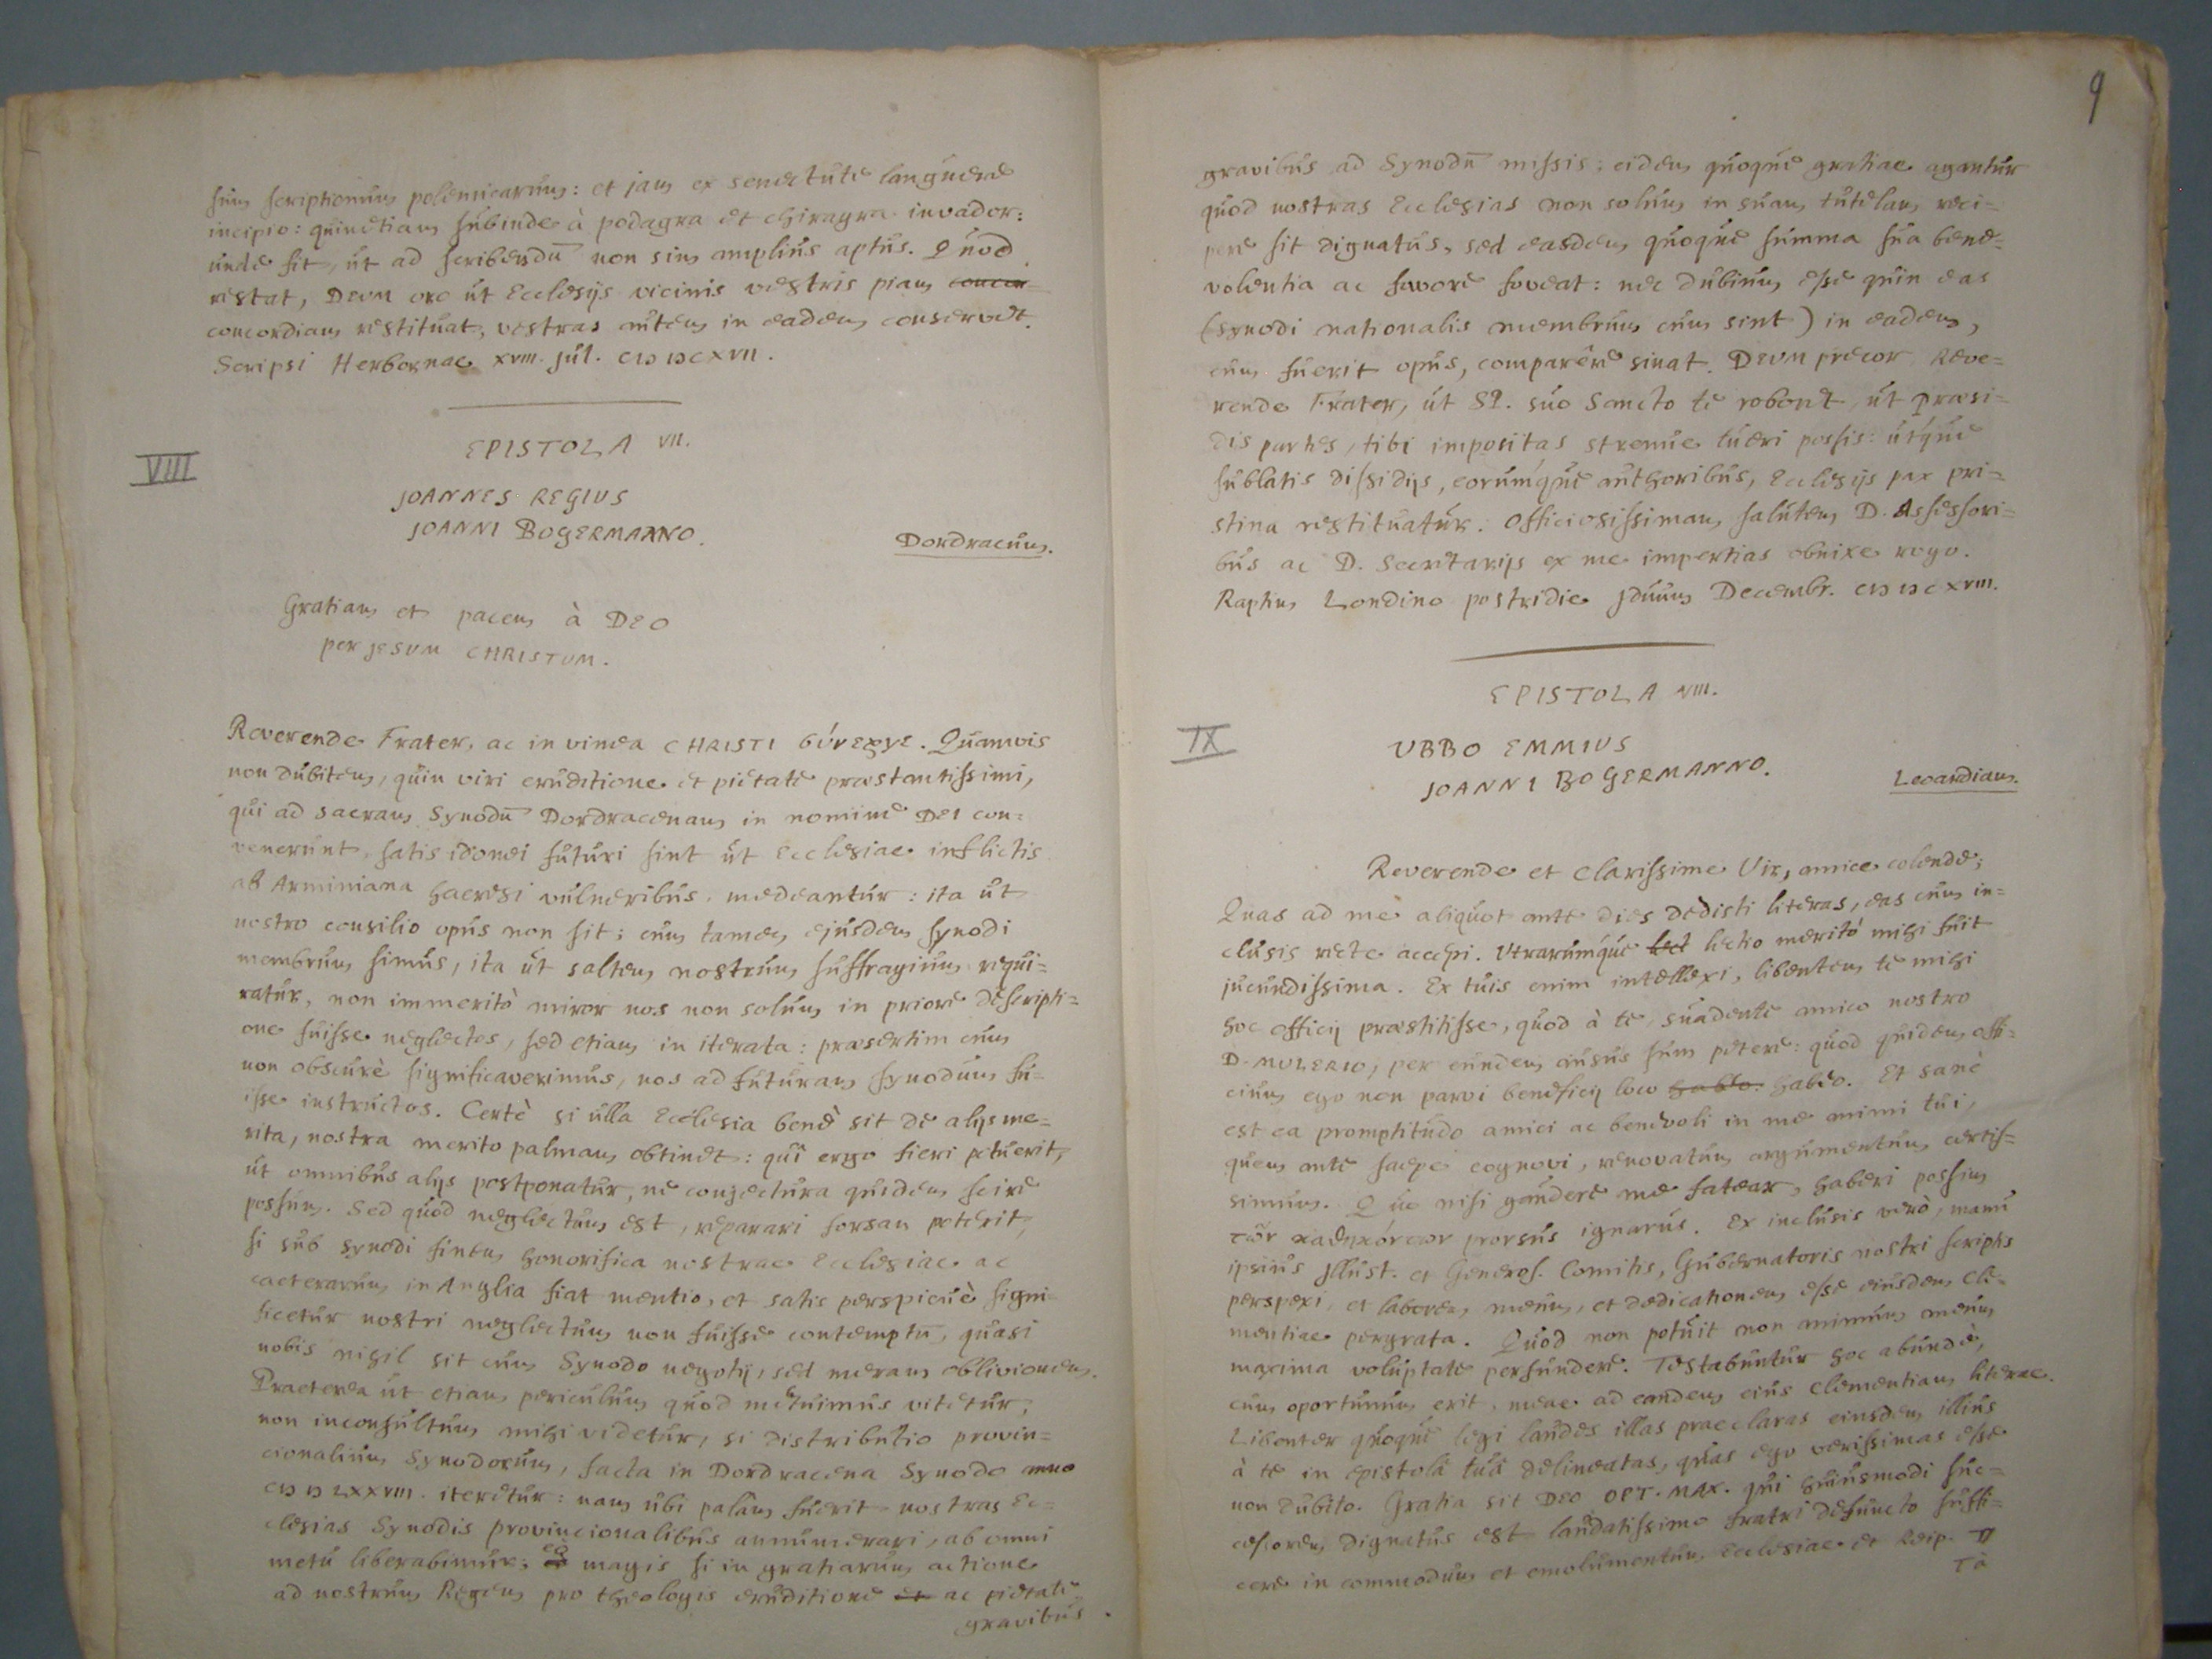 sum scriptionum polemicarum: et jam ex senectute languere
incipio: quinetiam subinde à podagra et chiragra invador:
unde fit, ut ad scribendū non sim amplius aptus. Quod
restat, DEUM oro ut Ecclesijs vicinis vestris piam concor-
concordiam restituat, vestras autem in eadem conservet.
Scripsi Herbornae XVIII. Jul. CIↃ IↃC XVII.
EPISTOLA VII.
VIII
JOANNES REGIUS
JOANNI BOGERMANNO.
Dordracum.
Gratiam et pacem à DEO
per JESUM CHRISTUM.
Reverende Frater, ac in vinea CHRISTI σύνεργε. Quamvis
non dubitem, quin viri eruditione et pietate praestantissimi,
qui ad sacram Synodū Dordracenam in nomine DEI con-
venerunt, satis idonei futuri sint ut Ecclesiae inflictis
ab Arminiana haeresi vulneribus, medeantur: ita ut
nostro consilio opus non sit; cum tamen ejusdem synodi
membrum simus, ita ut saltem nostrum suffragium requi-
ratur, non immeritò miror nos non solum in priore descripti-
one fuisse neglectos, sed etiam in iterata: praesertim cum
non obscurè significaverimus, nos ad futuram synodum fu-
isse instructos. Certè si ulla Ecclesia benè sit de alijs me-
rita, nostra merito palmam obtinet: quî ergo fieri potuerit,
ut omnibus alijs postponatur, ne conjectura quidem scire
possum. Sed quod neglectum est, reparari forsan poterit,
si sub synodi finem honorifica nostrae Ecclesiae ac
caeterarum in Anglia fiat mentio, et satis perspicuè signi-
ficetur nostri neglectum non fuisse contemptū, quasi
nobis nihil sit cum Synodo negotij, sed meram oblivionem.
Praeterea ut etiam periculum quod metuimus vitetur,
non inconsultum mihi videtur, si distributio provin-
cionalium Synodorum, facta in Dordracena Synodo anno
CIↃ IↃ LXXVIII. iteretur: nam ubi palàm fuerit nostras Ec-
clesias Synodis provincionalibus annumerari, ab omni
metu liberabimur; eò magis si in gratiarum actione
ad nostrum Regem pro theologis eruditione et ac pietate
gravibus
9
gravibus ad Synodū missis; eidem quoque gratiae agantur
quod nostras Ecclesias non solùm in suam tutelam reci-
pere sit dignatus, sed easdem quoque summa sua bene-
volentia ac favore foveat: nec dubium esse quin eas
(synodi nationalis membrum cum sint) in eadem,
cum fuerit opus, comparêre sinat. DEUM precor Reve-
rende Frater, ut SP. suo Sancto te roboret, ut praesi-
dis partes, tibi impositas strenuè tueri possis: utque
sublatis dissidijs, eorúmque authoribus, Ecclesijs pax pri-
stina restituatur. Officiosissimam salutem D. Assessori-
bus ac D. Secretarijs ex me impertias obnixe rogo.
Raptim Londino postridie Iduum Decembr. CIↃ IↃC XVIII.
EPISTOLA VIII.
IX
UBBO EMMIUS
JOANNI BOGERMANNO.
Leoardiam.
Reverende et Clarissime Vir, amice colende;
Quas ad me aliquot ante dies dedisti literas, eas cum in-
clusis recte accepi. Utrarúmque lect lectio meritò mihi fuit
jucundissima. Ex tuis enim intellexi, libentem te mihi
hoc officij praestitisse, quod à te, suadente amico nostro
D. MULERIO, per eundem ausus sum petere: quod quidem offi-
cium ego non parvi beneficij loco habeo. habeo. Et sanè
est ea promptitudo amici ac benevoli in me animi tui,
quem ante saepe cognovi, renovatum argumentum certis-
simum. Quo nisi gaudere me fatear, haberi possim
τῶν καθηκόντων prorsus ignarus. Ex inclusis verò, manu
ipsius Illust. et Generos. Comitis, Gubernatoris nostri scriptis
perspexi, et laborem meum, et dedicationem esse eiusdem Cle-
mentiae pergrata. Quod non potuit non animum meum
maxima voluptate perfundere. Testabuntur hoc abundè,
cum oportunum erit, meae ad eandem eius Clementiam literae.
Libenter quoque legi laudes illas praeclaras eiusdem illius
à te in epistolâ tuâ delineatas, quas ego verissimas esse
non dubito. Gratia sit DEO OPT. MAX. qui huiusmodi suc-
cessorem dignatus est laudatissimo fratri defuncto suffi-
cere in commodum et emolumentum Ecclesiae et Reip.
Tà